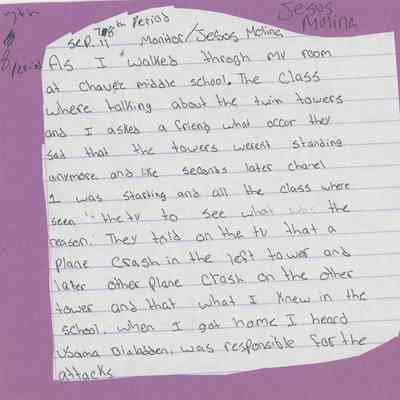 7th
8
Period
7th/8th Period
Jesus
Molina
Sep. 11 Monitor/Jesus Molina
As I walked throgh my room
at Chavez middle school. The class
where talking about the twin towers
and I asked a friend what occor they
sed that the towers werent standing
anymore and like seconds later chanel
1 was starting and all the class where
seen the tv to see what was the
reason. They told on the tv that a
plane crash in the left tower and
later other plane crash on the other
tower and that what I knew in the
school. when I got home I heard
Usama Binladden. was responsible for the
attacks